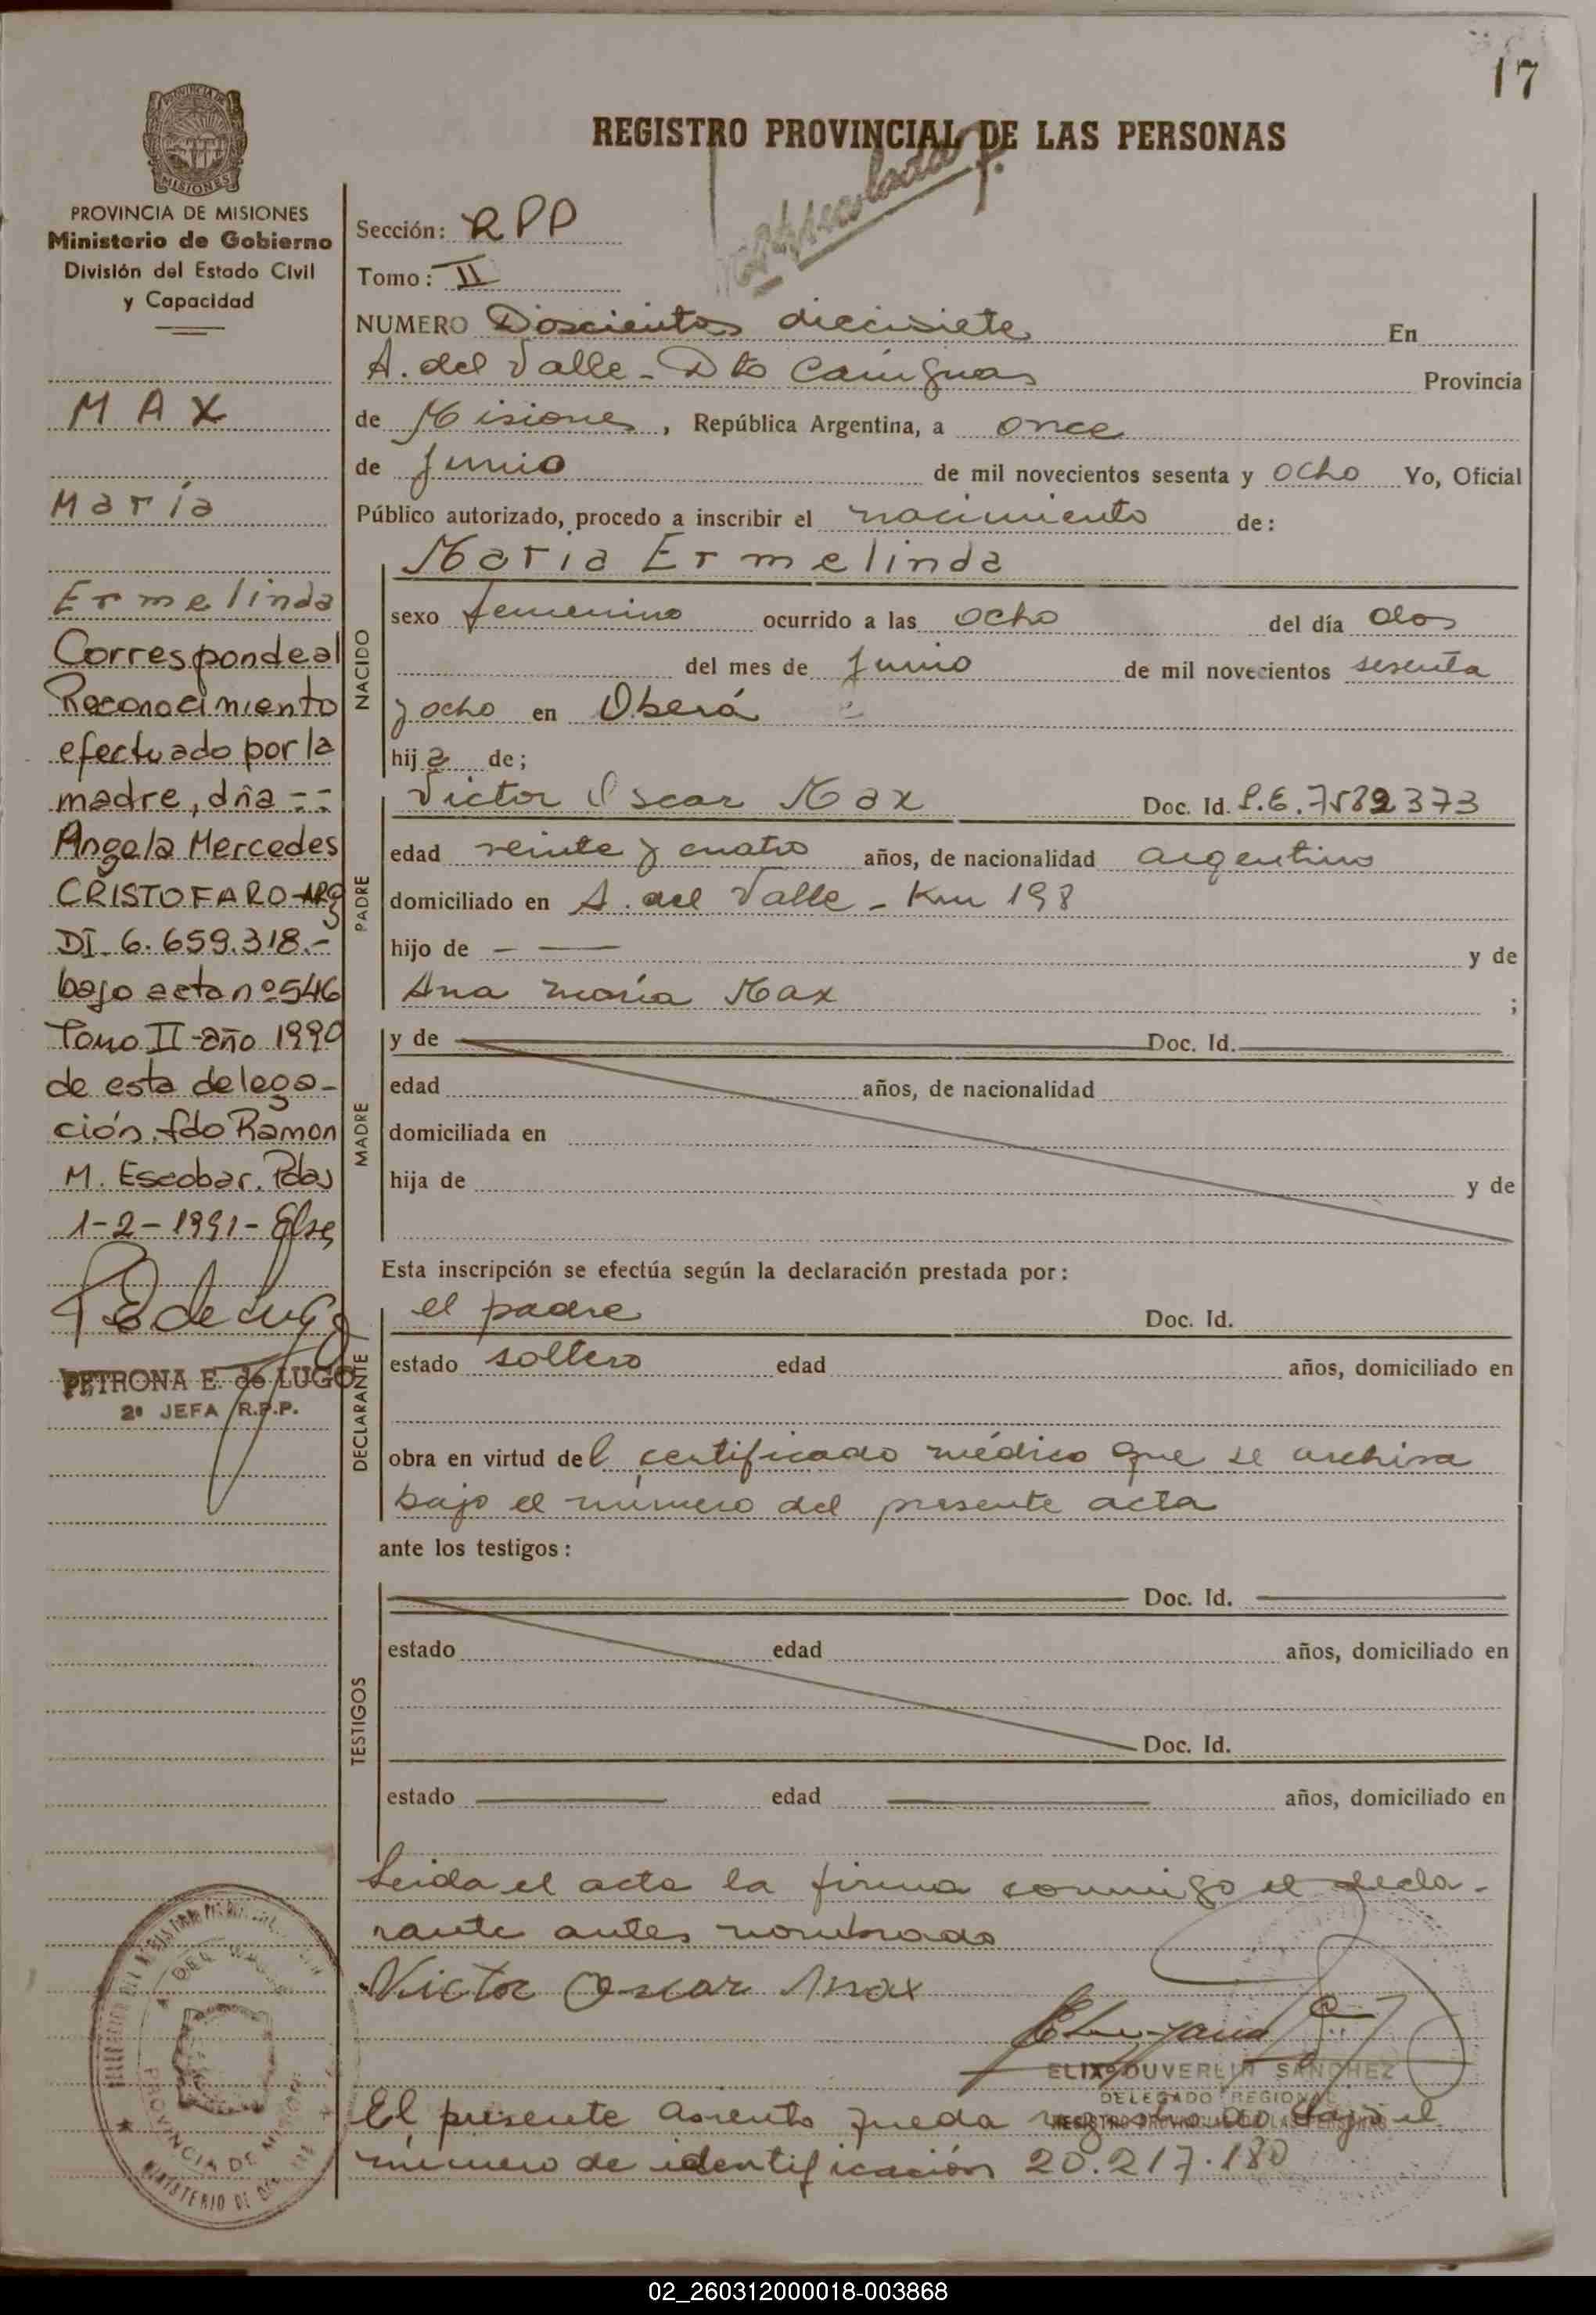 17
REGISTRO PROVINCIAL DE LAS PERSONAS
MISIONES
PROVINCIA DE MISIONES
Ministerio de Gobierno
División del Estado Civil
y Capacidad
MAX
María
Ermelinda
Corresponde al
Reconocimiento
efectuado por la
madre, dña --
Angela Mercedes
CRISTOFARO-ARG
DI. 6.659.318.-
bajo acta nº 546
Tomo II-año 1990
de esta delega-
ción. fdo Ramon
M. Escobar. Pdas
1-2-1991-
P E de Lugo
PETRONA E. de LUGO
2º JEFA R.P.P.
Sección: RPP
Tomo: II
NUMERO Doscientos diecisiete En
A. del Valle - Dto Cainguas Provincia
de Misiones, República Argentina, a once
de Junio de mil novecientos sesenta y ocho Yo, Oficial
Público autorizado, procedo a inscribir el nacimiento de:
NACIDO
Maria Ermelinda
sexo femenino ocurrido a las ocho del día dos
del mes de Junio de mil novecientos sesenta
y ocho en Oberá
hija de;
PADRE
Victor Oscar Max Doc. Id. 7582373
edad veinte y cuatro años, de nacionalidad argentino
domiciliado en A. del Valle - Km 198
hijo de — — y de
Ana maría Max ;
MADRE
y de Doc. Id.
edad años, de nacionalidad
domiciliada en
hija de y de
Esta inscripción se efectúa según la declaración prestada por:
DECLARANTE
el padre Doc. Id.
estado soltero edad años, domiciliado en
obra en virtud del certificado médico que se archiva
bajo el número del presente acta
ante los testigos:
TESTIGOS
Doc. Id.
estado edad años, domiciliado en
Doc. Id.
estado edad años, domiciliado en
Leida el acta la firma conmigo el decla-
rante antes nombrado
Victor Oscar Max
ELIX DUVERLIN SANCHEZ
DELEGADO REGIONAL
El presente asiento queda registrado bajo el
número de identificación 20.217.180
PROVINCIA DE MISIONES
02_260312000018-003868